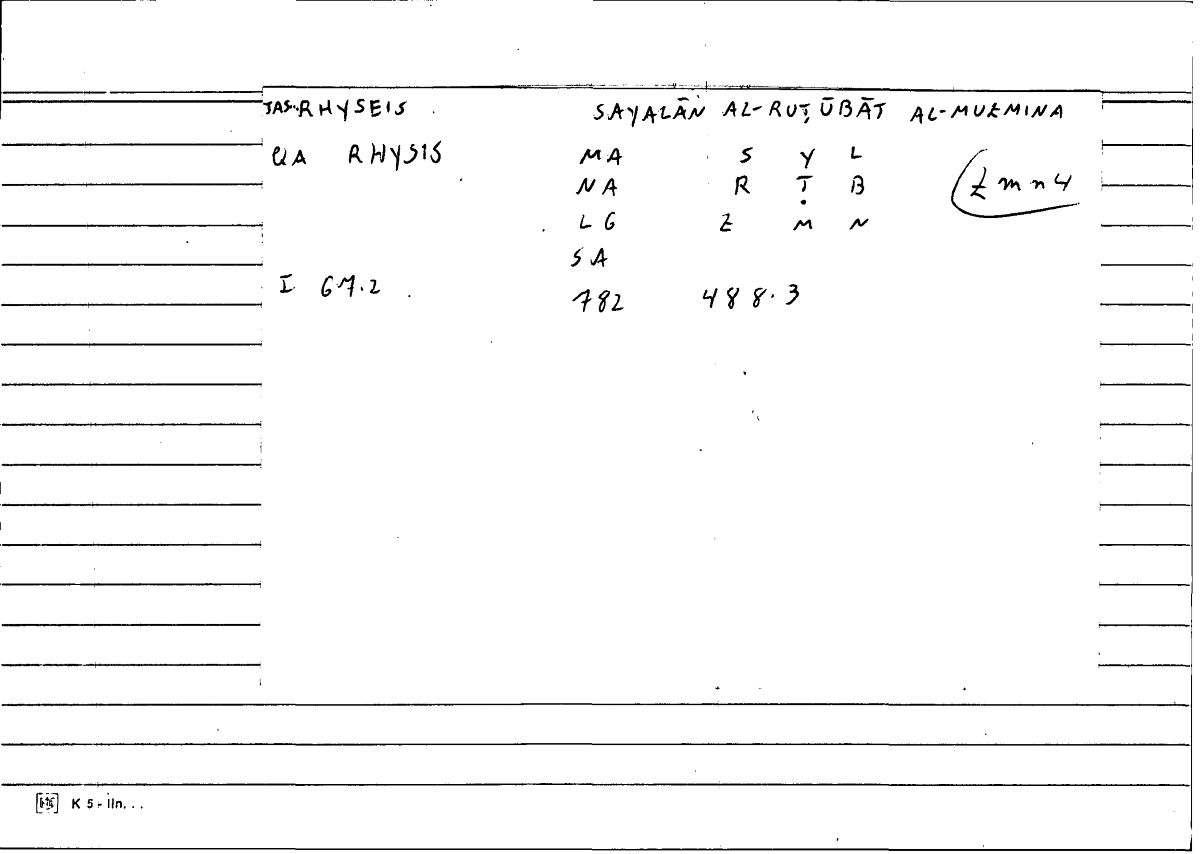 TAS. RHYSEIS SAYALĀN AL-RUṬŪBĀT AL-MUZMINA
QA RHYSIS MA S Y L
NA R Ṭ B zmn4
LG Z M N
SA
I 67.2 782 488.3
K 5 - iln. . .